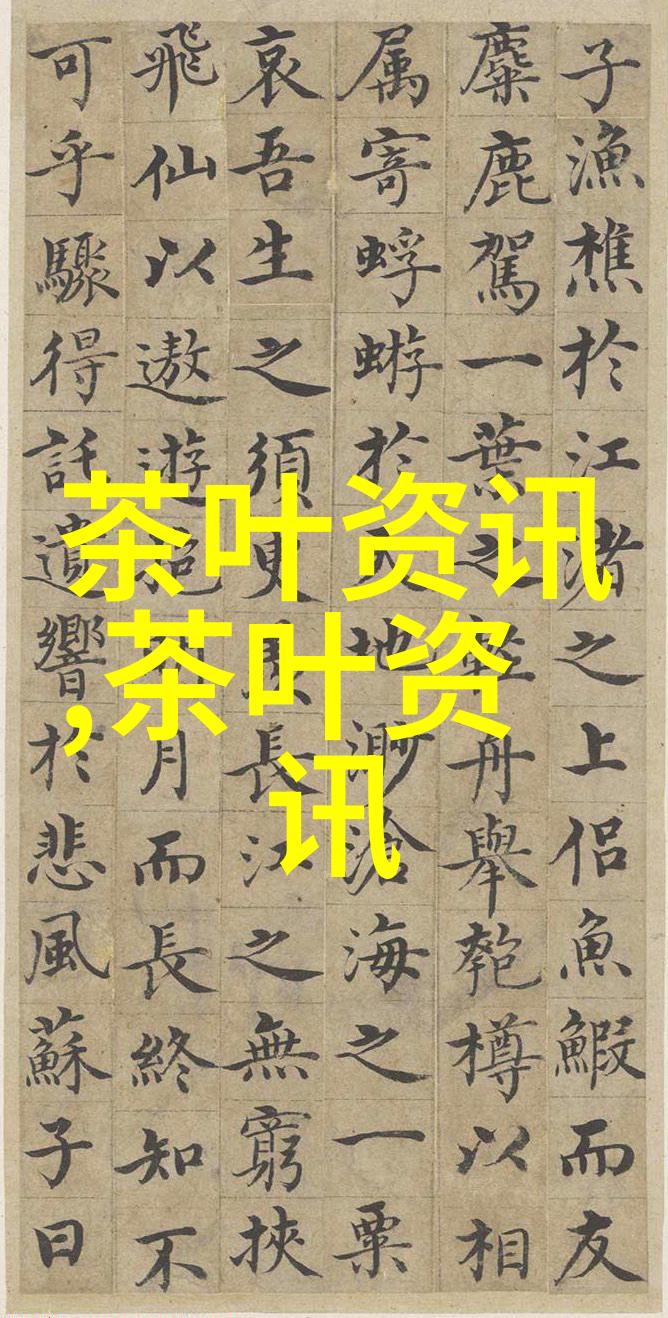 子漁樵於江渚之上侣魚鰕而友
麋鹿駕一葉之輕舟舉匏樽以相
属寄蜉蝣於天地渺滄海之一粟
哀吾生之須臾羨長江之無窮挾
飛仙以遨遊抱明月而長終知不
可乎驟得託遺響於悲風蘇子曰
茶叶资讯
,茶叶资
讯